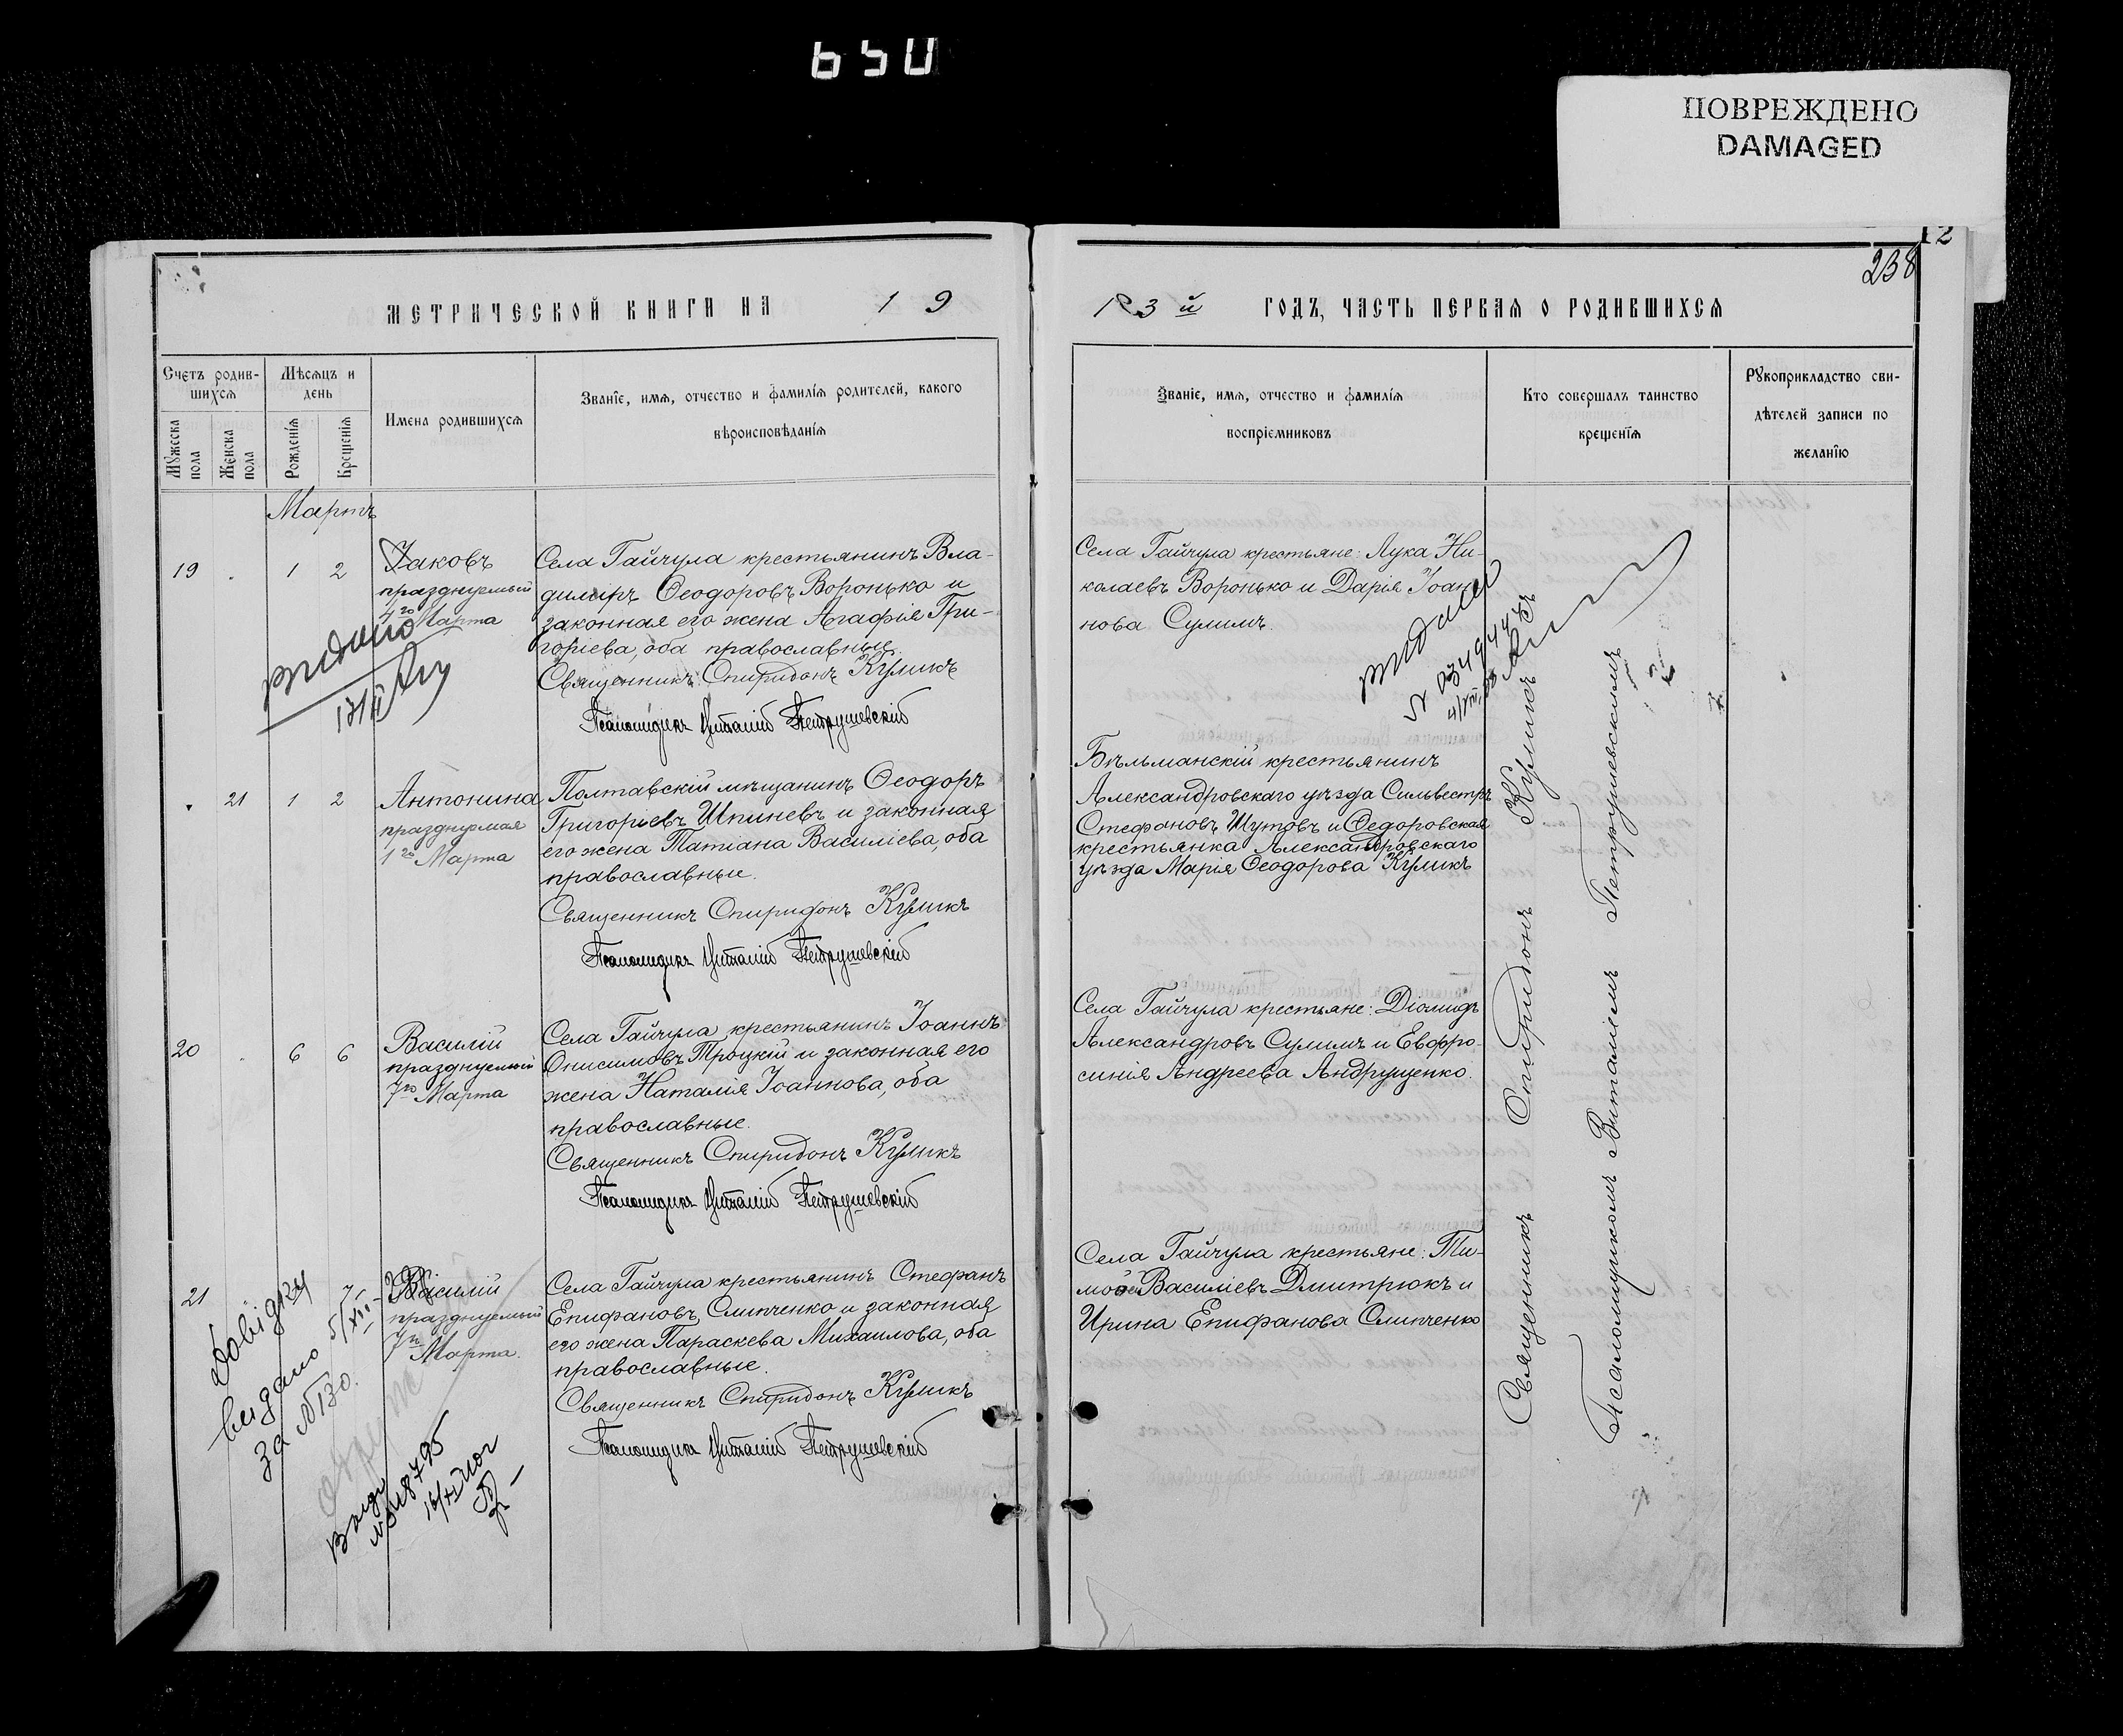 650
ПОВРЕЖДЕНО
DAMAGED
12
238
МЕТРИЧЕСКОЙ КНИГИ НА 19
13 й ГОДЪ, ЧАСТЬ ПЕРВАЯ О РОДИВШИХСЯ
Счетъ родив-
шихся
Мужеска пола
Женска пола
Мѣсяцъ и
день
Рожденія
Крещенія
Имена родившихся
Званіе, имя, отчество и фамилія родителей, какого
вѣроисповѣданія
Званіе, имя, отчество и фамилія
воспріемниковъ
Кто совершалъ таинство
крещенія
Рукоприкладство сви-
дѣтелей записи по
желанію
Мартъ
19 1 2
Іаковъ
празднуемый
1го Марта
Села Гайчула крестьянинъ Вла-
димиръ Ѳеодоровъ Воронько и
законная его жена Агафія Гри-
горіева, оба православные.
Священникъ Спиридонъ Куликъ
Псаломщикъ Виталій Петрушевскій
Села Гайчула крестьяне: Лука Ни-
колаевъ Воронько и Дарія Іоан-
нова Сулимъ.
21 1 2
Антонина
празднуемая
1го Марта
Полтавскій мѣщанинъ Ѳеодоръ
Григорьевъ Шпиневъ и законная
его жена Татіана Василіева, оба
православные.
Священникъ Спиридонъ Куликъ
Псаломщикъ Виталій Петрушевскій
Бѣльманскій крестьянинъ
Александровскаго уѣзда Сильвестръ
Стефановъ Шутовъ и Ѳедоровская
крестьянка Александровскаго
уѣзда Марія Ѳеодорова Куликъ
20 6 6
Василій
празднуемый
7го Марта
Села Гайчула крестьянинъ Іоаннъ
Онисимовъ Троцкій и законная его
жена Наталія Іоаннова, оба
православные.
Священникъ Спиридонъ Куликъ
Псаломщикъ Виталій Петрушевскій
Села Гайчула крестьяне: Діомидъ
Александровъ Сулимъ и Евфро-
синія Андреева Андрущенко.
21 7
Василій
празднуемый
7го Марта.
Села Гайчула крестьянинъ Стефанъ
Епифановъ Слипченко и законная
его жена Параскева Михаилова, оба
православные.
Священникъ Спиридонъ Куликъ
Псаломщикъ Виталій Петрушевскій
Села Гайчула крестьяне: Ти-
моѳей Василіевъ Дмитрюкъ и
Ирина Епифанова Слипченко
Священникъ Спиридонъ Куликъ съ
Псаломщикомъ Виталіемъ Петрушевскимъ
видано
видано
Довідку
видано 5/XII
за №130.